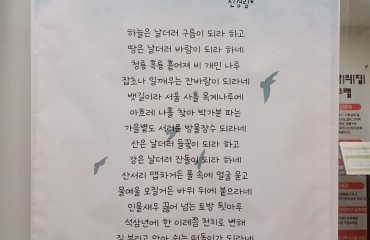 신경림
하늘은 날더러 구름이 되라 하고
땅은 날더러 바람이 되라 하네
청룡 흑룡 흩어져 비 개인 나루
잡초나 일깨우는 잔바람이 되라네
뱃길이라 서울 사흘 목계나루에
아흐레 나흘 찾아 박가분 파는
가을볕도 서러운 방물장수 되라네
산은 날더러 들꽃이 되라 하고
강은 날더러 잔돌이 되라 하네
산서리 맵차거든 풀 속에 얼굴 묻고
물여울 모질거든 바위 뒤에 붙으라네
민물새우 끓어 넘는 토방 툇마루
석삼년에 한 이레쯤 천치로 변해
짐 부리고 앉아 쉬는 떠돌이가 되라네